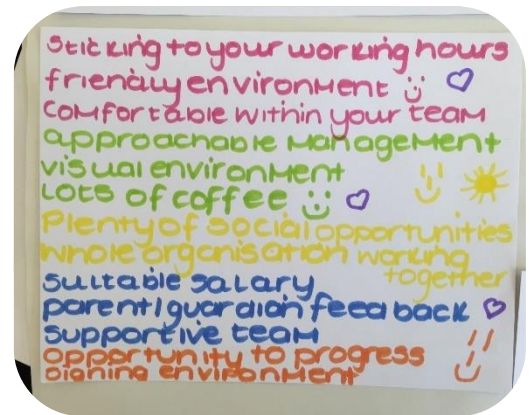 Sticking to your working hours
friendly environment
Comfortable within your team
approachable management
visual environment
Lots of coffee
Plenty of social opportunities
whole organisation working
together
suitable salary
parent/guardian feedback
supportive team
opportunity to progress
signing environment